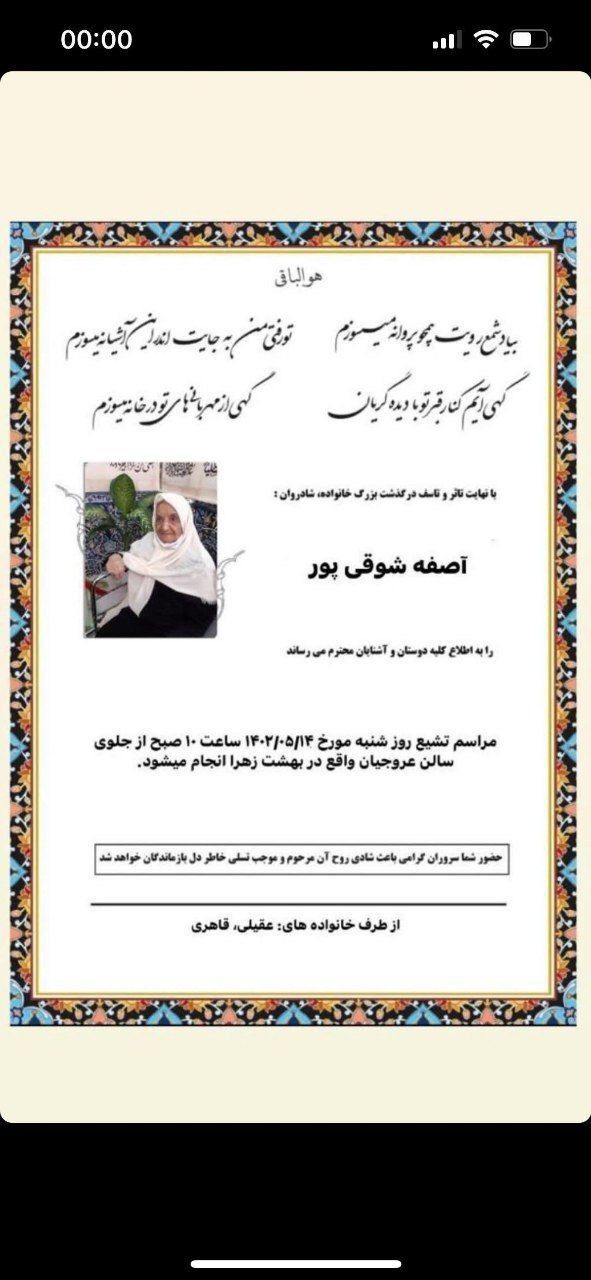 00:00
هوالباقی
بیاد شمع رویت همچو پروانه میسوزم تو رفتی من به جایت اندر این آشیانه میسوزم
گهی آیم کنار قبر تو با دیده گریان گهی از مهربانی های تو در خانه میسوزم
با نهایت تاثر و تاسف درگذشت بزرگ خانواده، شادروان :
آصفه شوقی پور
را به اطلاع کلیه دوستان و آشنایان محترم می رساند
مراسم تشیع روز شنبه مورخ ۱۴۰۲/۰۵/۱۴ ساعت ۱۰ صبح از جلوی
سالن عروجیان واقع در بهشت زهرا انجام میشود.
حضور شما سروران گرامی باعث شادی روح آن مرحوم و موجب تسلی خاطر دل بازماندگان خواهد شد
از طرف خانواده های: عقیلی، قاهری